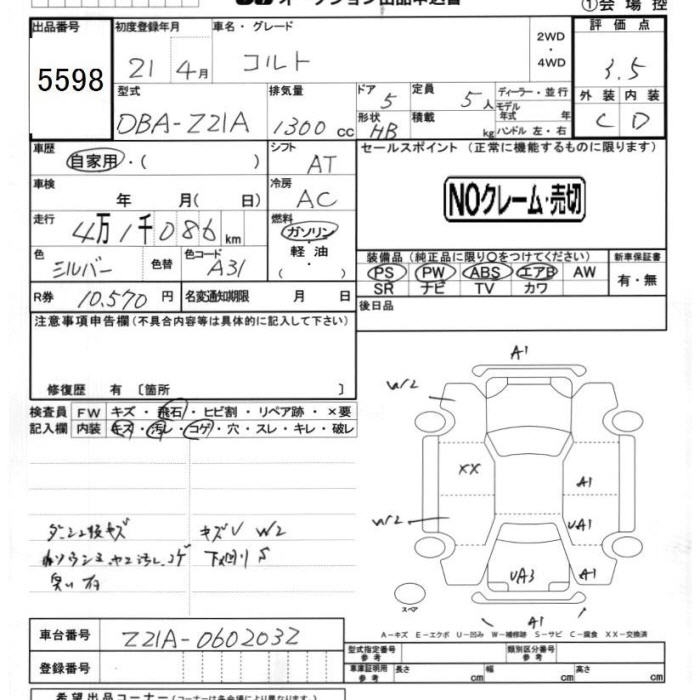 オークション出品申込書
①会場控
出品番号 初度登録年月 車名・グレード 2WD・4WD 評価点
5598 21年4月 コルト 3.5
型式 排気量 ドア 5 定員 5人 ディーラー・並行 外装 内装
DBA-Z21A 1300cc 形状 HB 積載 kg モデル年式 年 C D
ハンドル 左・右
車歴 シフト セールスポイント (正常に機能するものに限ります)
自家用・( ) AT
車検 冷房 NOクレーム・売切
年 月( 日) AC
走行 燃料
4万1千086km ガソリン・軽油・( )
色 色替 色コード 装備品 (純正品に限り○をつけてください) 新車保証書
シルバー A31 PS PW ABS エアB AW 有・無
SR ナビ TV カワ
R券 10,570円 名変通知期限 月 日 後日品
注意事項申告欄(不具合内容等は具体的に記入して下さい)
修復歴 有 〔箇所 〕
検査員 FW キズ・飛石・ヒビ割・リペア跡・×要
記入欄 内装 キズ・汚レ・コゲ・穴・スレ・キレ・破レ
A1
W2
XX A1
W2 UA1
ダッシュ板キズ キズU W2
汚レコゲ 下回りS
臭い有
UA3 A1
スペア
A1
A-キズ E-エクボ U-凹み W-補修跡 S-サビ C-腐食 XX-交換済
車台番号 Z21A-0602032
型式指定番号 参考 類別区分番号 参考
登録番号 車庫証明用 参考 長さ cm 幅 cm 高さ cm
希望出品コーナー(コーナーは各会場により異なります)